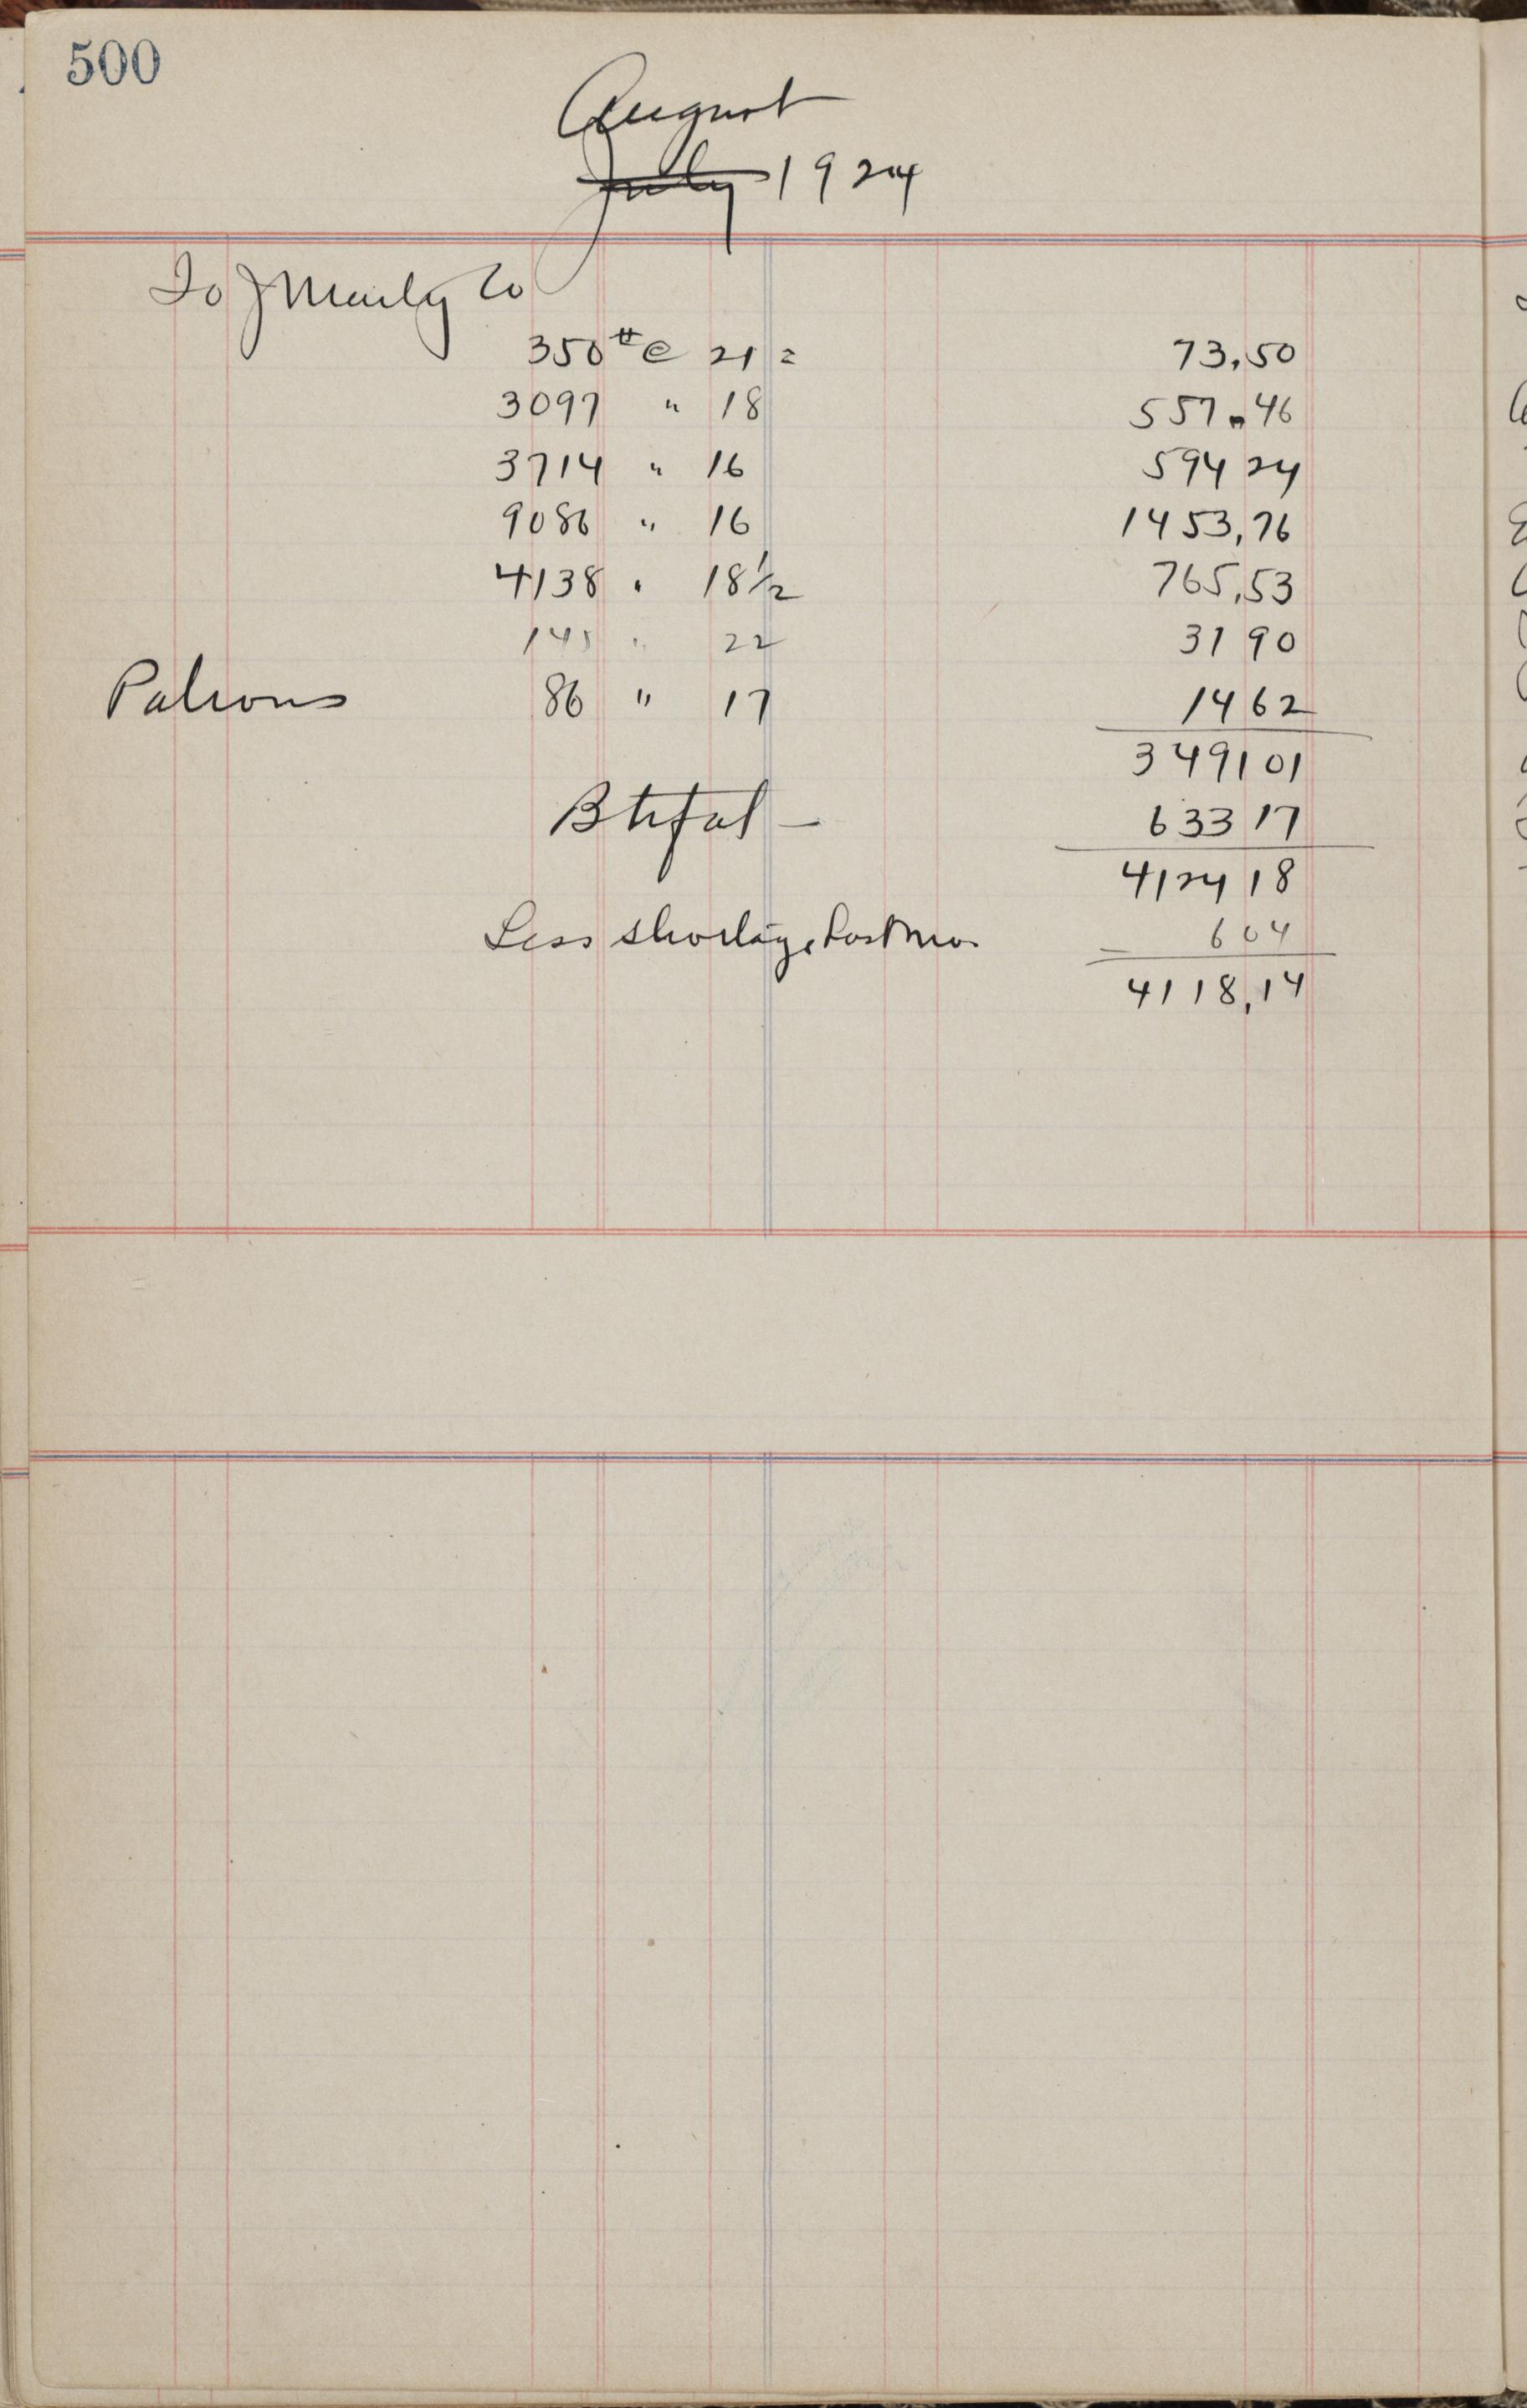 500
August
July 1924
To J Manly Co
350 # @ 21 = 73.50
3097 " 18 557.46
3714 " 16 594 24
9086 " 16 1453,76
4138 " 18 1/2 765,53
145 " 22 31 90
Patrons 86 " 17 14 62
3491 01
633 17
4124 18
Less shortage Last mo. 6 04
4118,14